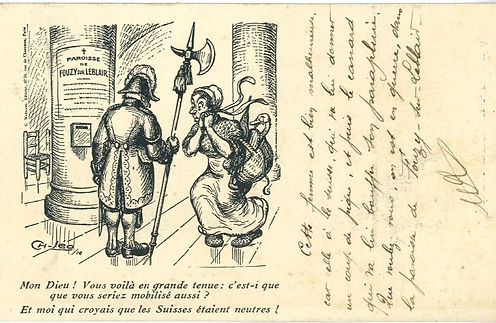 PAROISSE
DE
FOUZY SUR LEBLAIR
Mon Dieu ! Vous voilà en grande tenue : c'est-i que
que vous seriez mobilisé aussi ?
Et moi qui croyais que les Suisses étaient neutres !
Cette femme est bien malheureuse
car elle a le suisse, qui va lui donner
un coup de pique, et puis le canard
qui va lui son parapluie.
vous, on est en guerre, dans
la paroisse de Fouzy-sur-Leblair